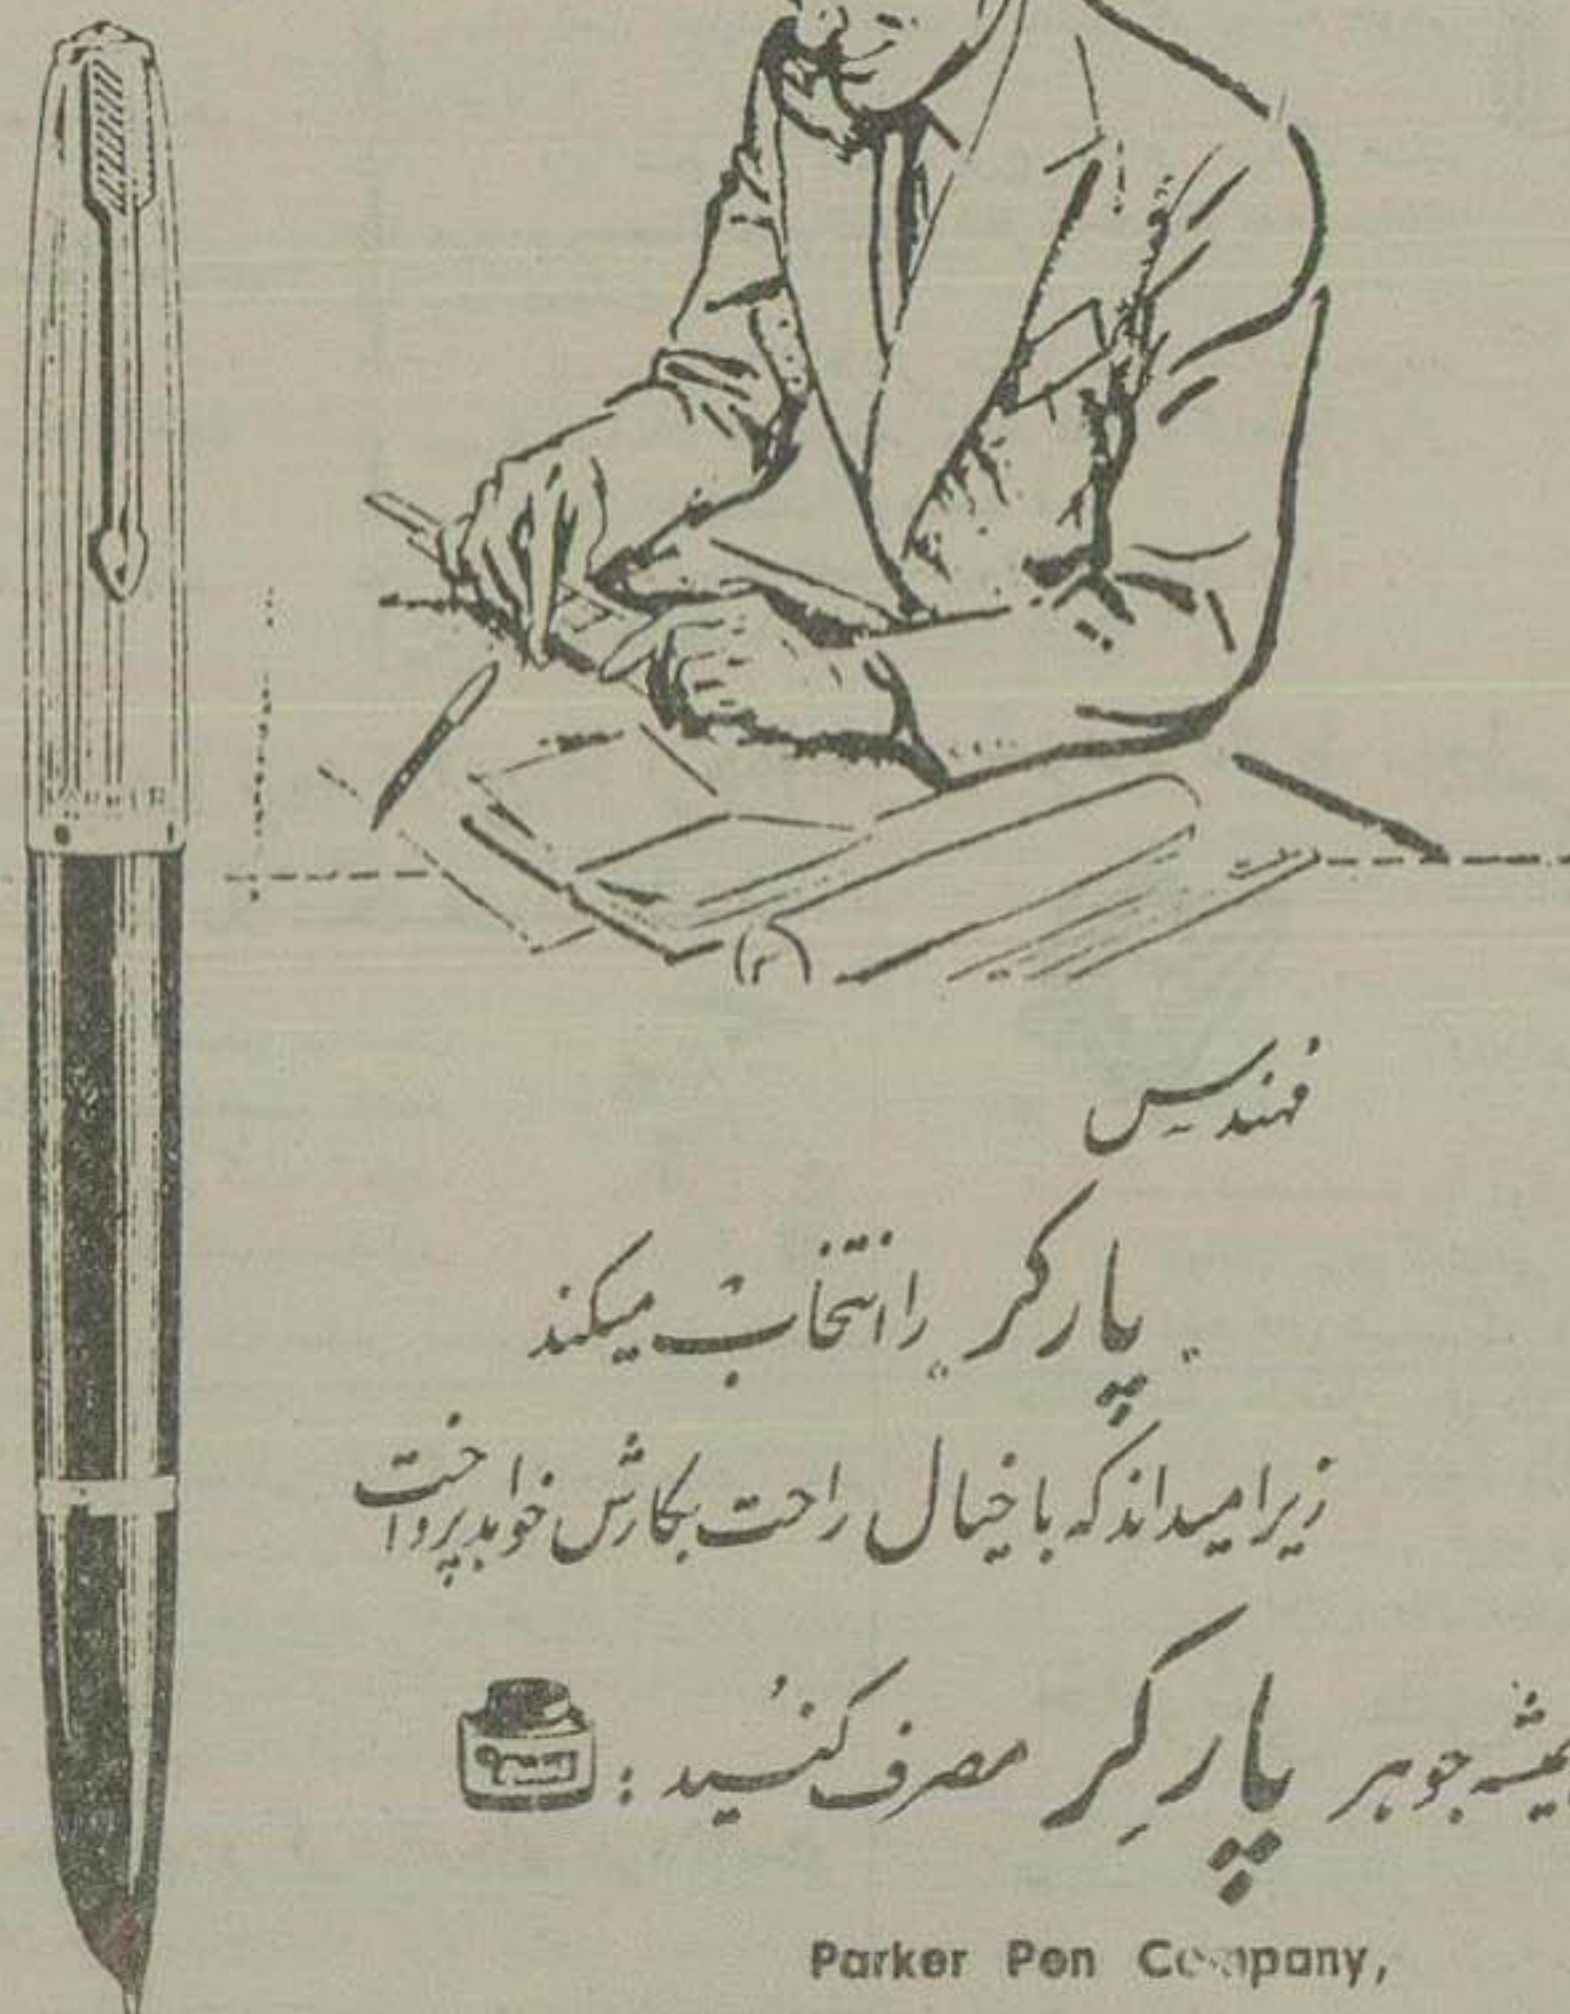 PARKER
مُهندس
„پارکر„ را انتخاب میکند
زیرا میداند که با خیال راحت بکارش خواهد پرداخت
همیشه جوهر پارکِر مصرف کنید :
Parker Pen Company,